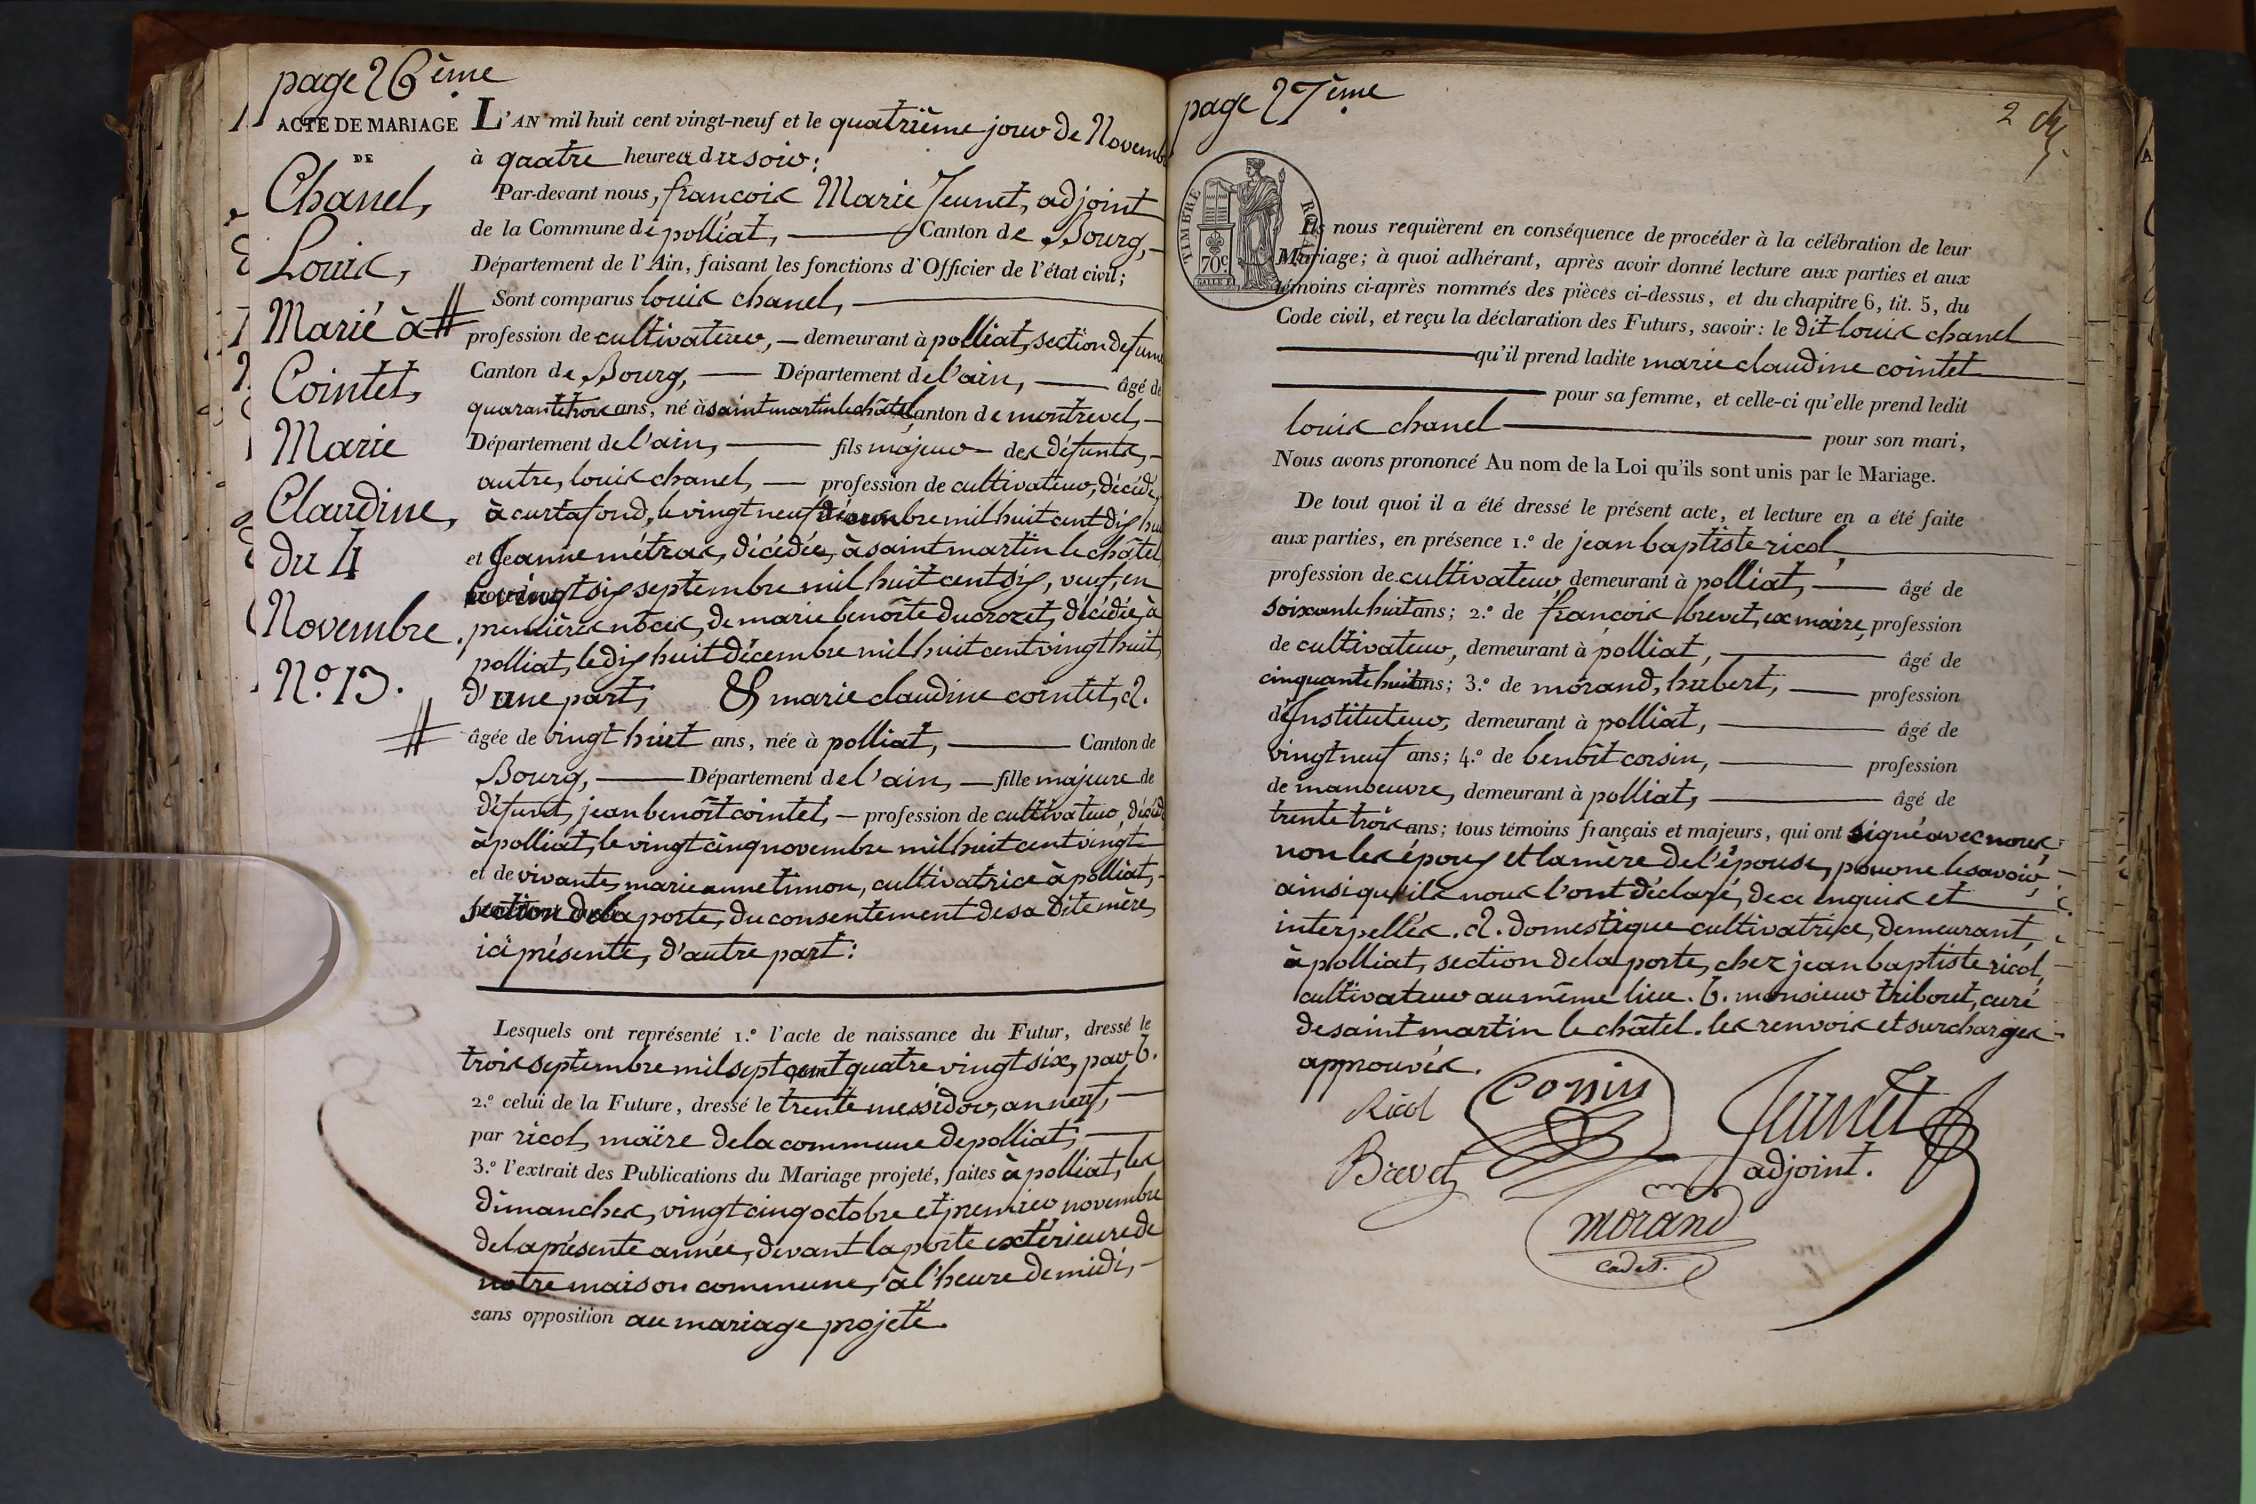 page 26ème
ACTE DE MARIAGE
DE
Chanel,
Louis,
Marié à #
Cointet,
Marie
Claudine,
du 4
Novembre.
N.o 13.
#
L'AN mil huit cent vingt-neuf et le quatrième jour de Novembre
à quatre heures du soir:
Par-devant nous, françois Marie Jeunet, adjoint
de la Commune de polliat, Canton de Bourg,
Département de l'Ain, faisant les fonctions d'Officier de l'état civil;
Sont comparus louis chanel,
profession de cultivateur, demeurant à polliat, section de
Canton de Bourg, Département de l'ain, âgé de
quarante trois ans, né à saint martin le châtel, Canton de montrevel,
Département de l'ain, fils majeur des défunts,
autre, louis chanel, profession de cultivateur, décédé,
à curtafond, le vingt neuf mil huit cent dix huit
et Jeanne métras, décédée, à saint martin le châtel
le vingt six septembre mil huit cent six, veuf, en
premières noces, de marie benoîte ducrozet, décédée, à
polliat, le dix huit décembre mil huit cent vingt huit,
d'une part; & marie claudine cointet, a.
âgée de vingt huit ans, née à polliat, Canton de
Bourg, Département de l'ain, fille majeure de
défunt, jean benoît cointet, profession de cultivateur, décédé
à polliat, le vingt cinq novembre mil huit cent vingt
et de vivante, marie anne timon, cultivatrice à polliat,
section de la porte, du consentement de sa dite mère
ici présente, d'autre part:
Lesquels ont représenté 1.o l'acte de naissance du Futur, dressé le
trois septembre mil sept cent quatre vingt six, par b.
2.o celui de la Future, dressé le trente messidor, an neuf,
par ricol, maire de la commune de polliat,
3.o l'extrait des Publications du Mariage projeté, faites à polliat, les
dimanches, vingt cinq octobre et premier novembre
de la présente année, devant la porte extérieure de
notre maison commune, à l'heure de midi,
sans opposition au mariage projeté.
page 27ème
2
TIMBRE ROYAL
70c
Ils nous requièrent en conséquence de procéder à la célébration de leur
Mariage; à quoi adhérant, après avoir donné lecture aux parties et aux
témoins ci-après nommés des pièces ci-dessus, et du chapitre 6, tit. 5, du
Code civil, et reçu la déclaration des Futurs, savoir: le dit louis chanel
qu'il prend ladite marie claudine cointet
pour sa femme, et celle-ci qu'elle prend ledit
louis chanel pour son mari,
Nous avons prononcé Au nom de la Loi qu'ils sont unis par le Mariage.
De tout quoi il a été dressé le présent acte, et lecture en a été faite
aux parties, en présence 1.o de jean baptiste ricol,
profession de cultivateur, demeurant à polliat, âgé de
soixante huit ans; 2.o de françois brevet, ex maire, profession
de cultivateur, demeurant à polliat, âgé de
cinquante huit ans; 3.o de morand, hubert, profession
d'Instituteur, demeurant à polliat, âgé de
vingt neuf ans; 4.o de benoît corsin, profession
de manoeuvre, demeurant à polliat, âgé de
trente trois ans; tous témoins français et majeurs, qui ont signé avec nous
non les époux et la mère de l'épouse, pour ne le savoir,
ainsi qu'ils nous l'ont déclaré, de ce enquis et
interpellés. a. domestique cultivatrice, demeurant,
à polliat, section de la porte, chez jean baptiste ricol,
cultivateur au même lieu. b. monsieur triboret, curé
de saint martin le châtel. les renvois et surcharges
approuvés.
Ricol
Corsin
Jeunet
Brevet
adjoint.
morand
cadet.